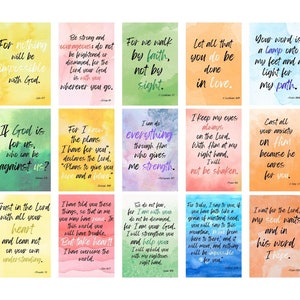 For nothing
will be
impossible
with God.
Be strong and
courageous; do not
be frightened or
dismayed, for the
Lord your God
is with you
wherever you go.
For we walk
by faith,
not by
sight.
Let all that
you do be
done
in love.
Your word is
a lamp onto
my feet and a
light for
my path.
If God is
for us,
who can be
against us?
For I know
the plans
I have for you",
declares the Lord,
"Plans to give you
hope and a future"
I can do
everything
through Him
who gives
me strength
I keep my eyes
always
on the Lord.
With Him at my
right hand,
I will
not be shaken.
Cast all
your anxiety
on Him
because he
cares
for you
Trust in the Lord
with all your
heart
and lean not
on your own
understanding.
I have told you these
things, so that in me
you may have peace.
In this world you
will have trouble,
But take heart!
I have overcome the
world.
So do not fear,
for I am with you
do not be dismayed,
for I am your God.
I will strengthen you
and help you
I will uphold you
with my righteous
right hand.
Truly, I say to you, if
you have faith like a
grain of mustard seed,
you will say to this
mountain, move from
here to there, and it
will move, and nothing
will be impossible
for you
I wait for the Lord,
my soul waits
and in
his word
I hope.